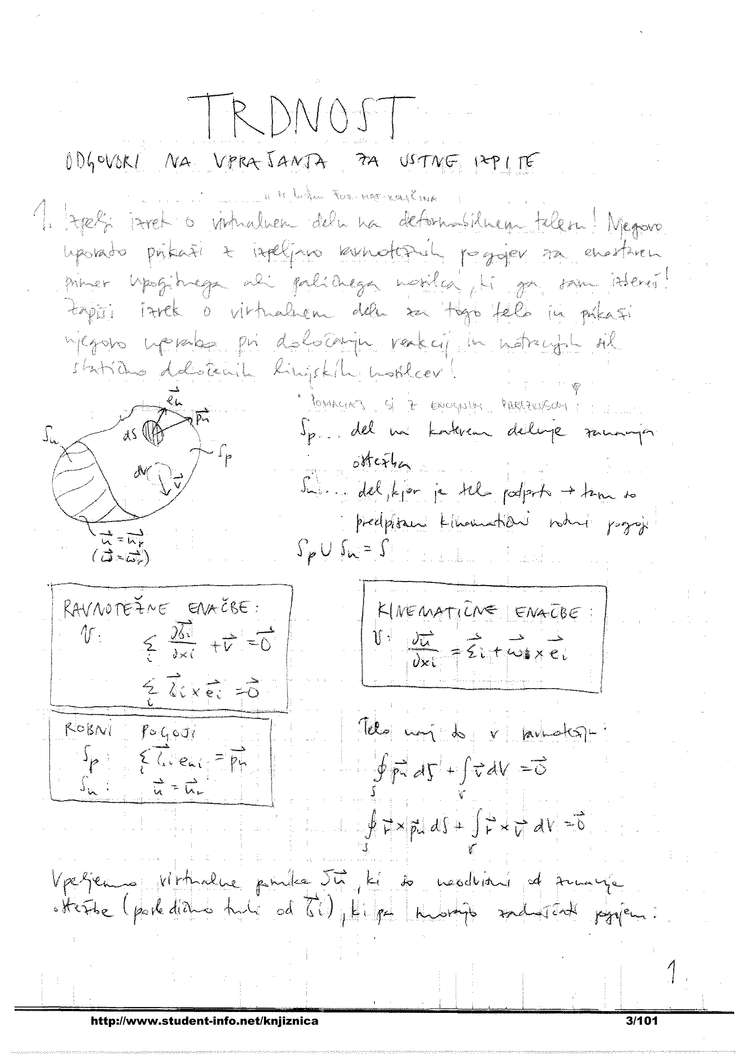 TRDNOST
ODGOVORI NA VPRAŠANJA ZA USTNE IZPITE
1. Izpelji izrek o virtualnem delu na deformabilnem telesu! Njegovo
uporabo prikaži z izpeljavo ravnotežnih pogojev za enostaven
primer upogibnega ali paličnega nosilca, ki ga sam izbereš!
Zapiši izrek o virtualnem delu za togo telo in prikaži
njegovo uporabo pri določanju reakcij in notranjih sil
statično določenih linijskih nosilcev!
POMAGAJ SI Z
Sp... del na katerem deluje zunanja
obtežba
Su... del, kjer je telo podprto → tam so
predpisani kinematični robni pogoji
Sp ∪ Su = S
Su
dS
eₙ
pₙ
Sp
dV
v
u = uᵣ
(ω = ωᵣ)
RAVNOTEŽNE ENAČBE:
V: Σᵢ ∂σᵢ/∂xᵢ + v = 0
Σᵢ σᵢ × eᵢ = 0
KINEMATIČNE ENAČBE:
V: ∂u/∂xᵢ = εᵢ + ω × eᵢ
ROBNI POGOJI
Sp: Σᵢ σᵢ eₙᵢ = pₙ
Su: u = uᵣ
Telo naj bo v ravnotežju:
∮S pₙ dS + ∫V v dV = 0
∮S r × pₙ dS + ∫V r × v dV = 0
Vpeljemo virtualne pomike δu, ki so neodvisni od zunanje
obtežbe (posledično tudi od σᵢ), ki pa morajo zadoščati pogojem:
1
http://www.student-info.net/knjiznica
3/101